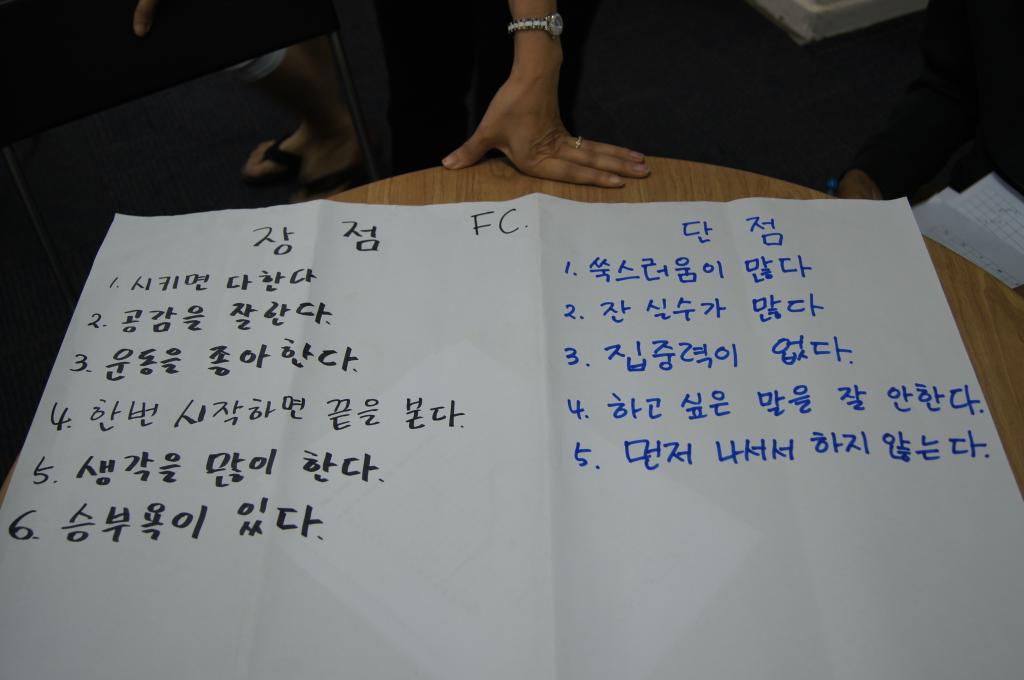 FC.
장 점
1. 시키면 다한다
2. 공감을 잘한다.
3. 운동을 좋아한다.
4. 한번 시작하면 끝을 본다.
5. 생각을 많이 한다.
6. 승부욕이 있다.
단 점
1. 쑥스러움이 많다
2. 잔 실수가 많다
3. 집중력이 없다.
4. 하고 싶은 말을 잘 안한다.
5. 먼저 나서서 하지 않는다.